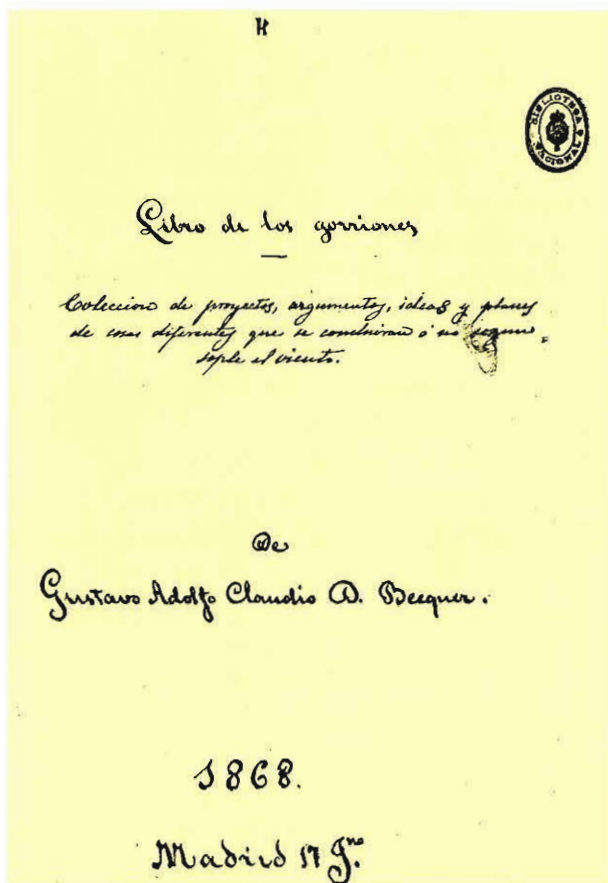 H
BIBLIOTECA NACIONAL
Libro de los gorriones
Coleccion de proyectos, argumentos, ideas y planes
de cosas diferentes que se concluiran ó no segun
sople el viento.
De
Gustavo Adolfo Claudio D. Becquer.
1868.
Madrid 17 Jno.